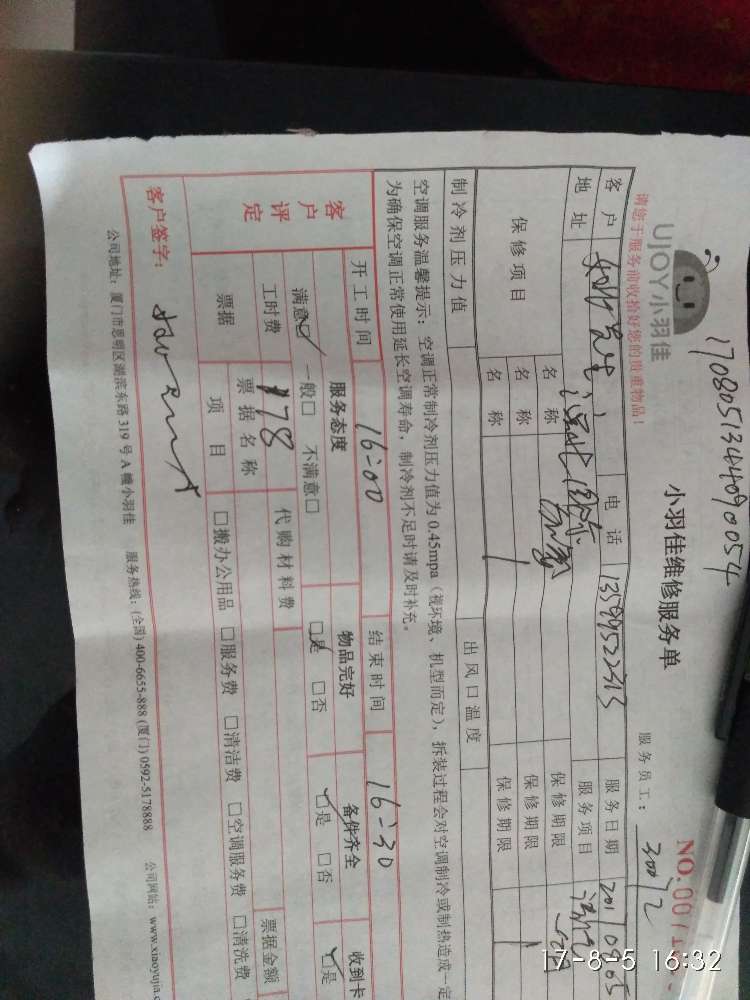 170805134409005４
UJOY小羽佳
请您于服务前收拾好您的贵重物品!
小羽佳维修服务单
NO.00
服务员工: 30012
客户 电话 13599522313 服务日期 201
地址 服务项目
保修项目 名称 保修期限
名称 保修期限
名称 保修期限
制冷剂压力值 出风口温度
空调服务温馨提示: 空调正常制冷剂压力值为 0.45mpa (视环境、机型而定), 拆装过程会对空调制冷或制热造成一定
为确保空调正常使用延长空调寿命, 制冷剂不足时请及时补充。
开工时间 16:00 结束时间 16:30
客户评定 服务态度 物品完好 备件齐全 收到卡
满意☑ 一般□ 不满意□ ☑是 □否 ☑是 □否 ☑是
工时费 178 代购材料费
票据 票据名称 票据金额
项目 □搬办公用品 □服务费 □清洁费 □空调服务费 □清洗费
客户签字:
公司地址: 厦门市思明区湖滨东路 319 号 A 幢小羽佳 服务热线: (全国) 400-6655-888 (厦门) 0592-5178888 公司网站: www.xiaoyujia.c
17-8-5 16:32